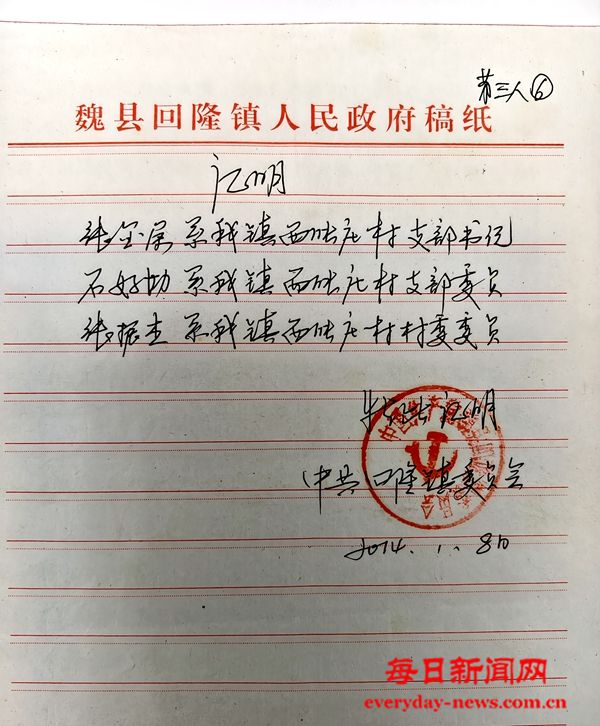 第三人⑥
魏县回隆镇人民政府稿纸
证明
张金 系我镇西 庄村支部书记
石好 系我镇西 庄村支部委员
张振 系我镇西 庄村村委委员
特此证明
中共回隆镇委员会
2014.1.8日
每日新闻网
everyday-news.com.cn